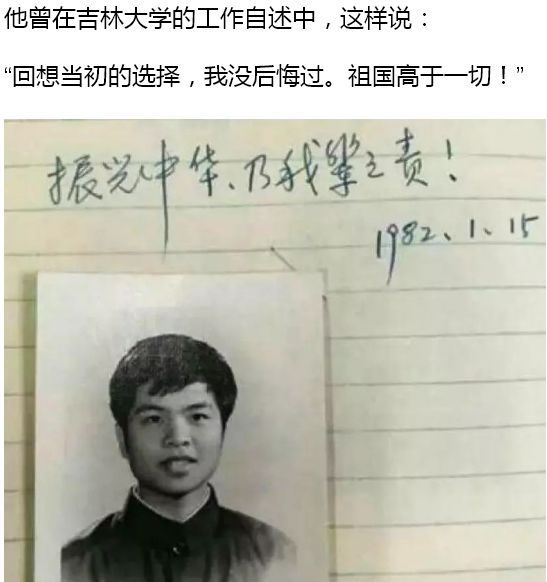 他曾在吉林大学的工作自述中，这样说：
“回想当初的选择，我没后悔过。祖国高于一切！”
振兴中华、乃我辈之责！
1982、1、15